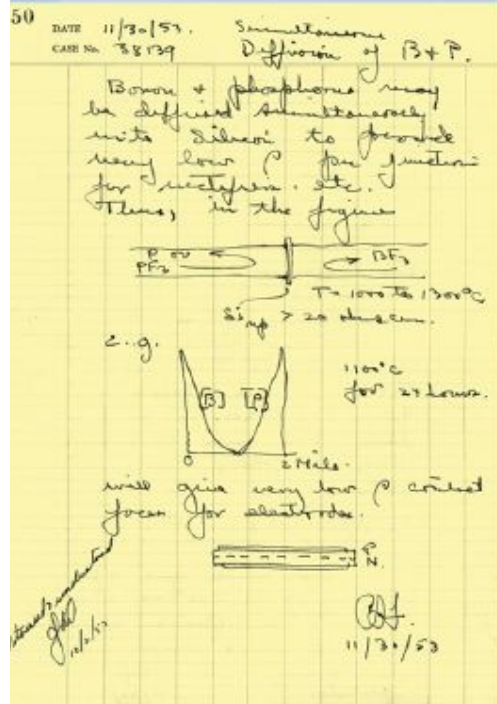 50
DATE 11/30/53. Simultaneous
CASE No. 38139 Diffusion of B & P.
Boron & phosphorus may
be diffused simultaneously
into Silicon to provide
very low ρ pn junction
for rectifiers. etc.
Thus, in the figure
P or
PF3
BF3
T = 1000 to 1300°C
Si > 20 ohm cm.
e.g.
1100°C
for 24 hours.
[B] [P]
0
2 Mils.
will give very low ρ contact
faces for electrodes.
P
N.
understood
11/30/53